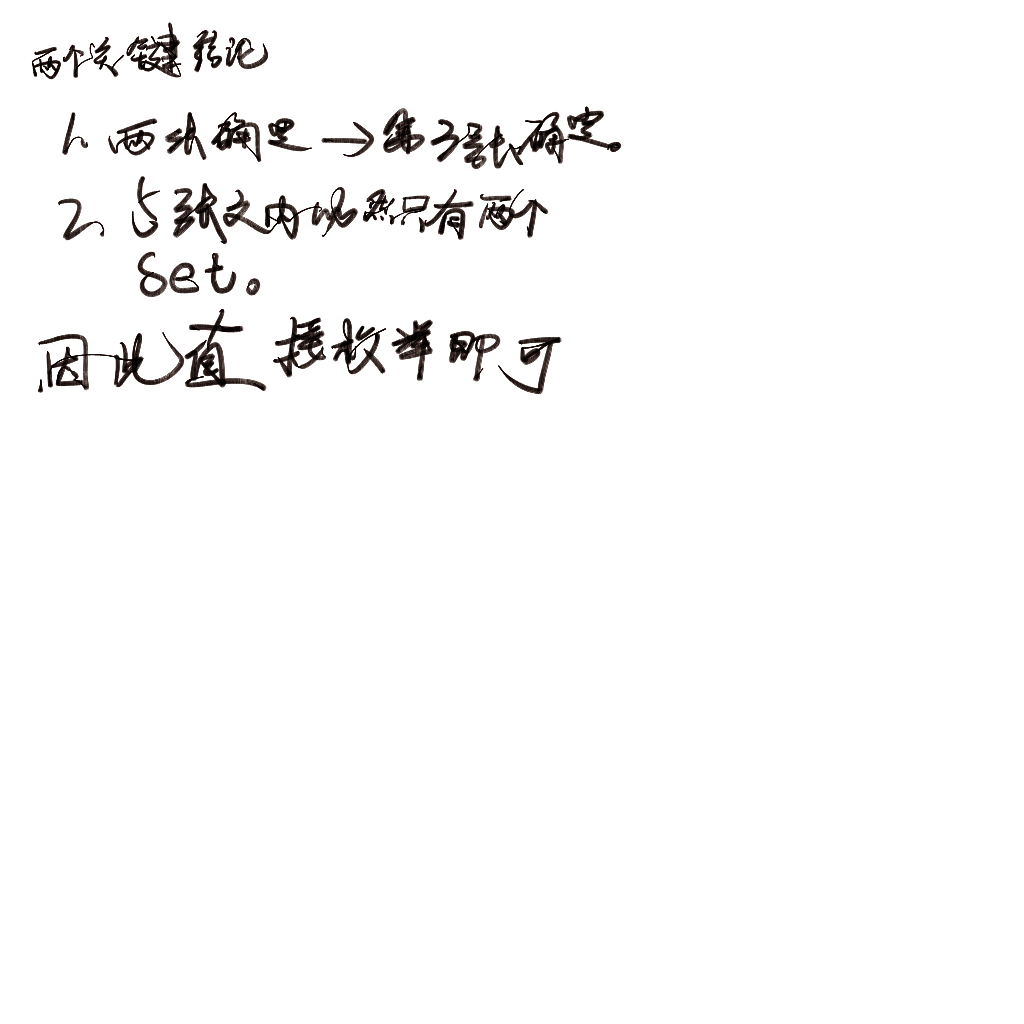 两个关键结论
1. 两张确定→第3张确定。
2、5张之内必然只有两个
set。
因此直接枚举即可